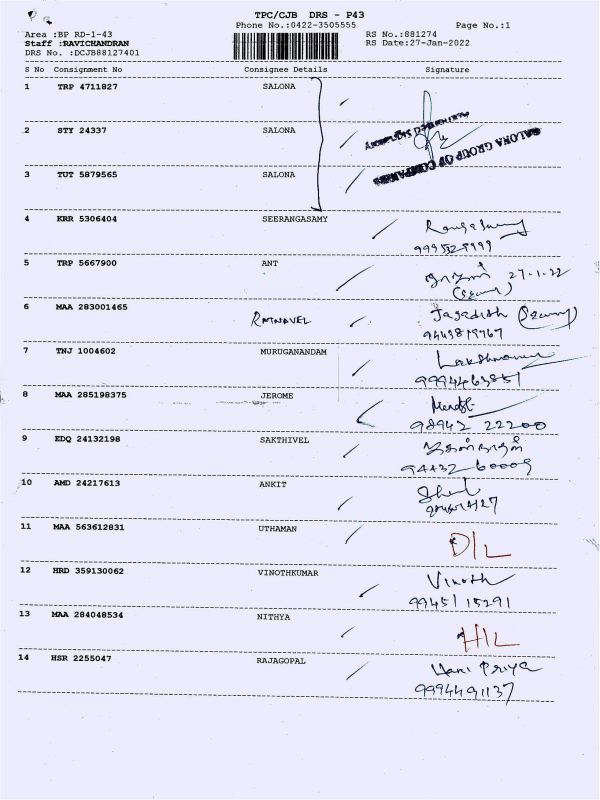 TPC/CJB DRS - P43
Phone No.:0422-3505555 Page No.:1
Area :BP RD-1-43 RS No.:881274
Staff :RAVICHANDRAN RS Date:27-Jan-2022
DRS No. :DCJB88127401
S No Consignment No Consignee Details Signature
1 TRP 4711827 SALONA
AUTHORISED SIGNATORY
2 STY 24337 SALONA
SALONA GROUP OF COMPANIES
3 TUT 5879565 SALONA
4 KRR 5306404 SEERANGASAMY Rangasamy
5 TRP 5667900 ANT 27-1-22
6 MAA 283001465 RATNAVEL Jagadish
7 TNJ 1004602 MURUGANANDAM Lakshmanan
9994463851
8 MAA 285198375 JEROME
98942 22200
9 EDQ 24132198 SAKTHIVEL
94432 60009
10 AMD 24217613 ANKIT
11 MAA 563612831 UTHAMAN D/L
12 HRD 359130062 VINOTHKUMAR Vinoth
99451 15291
13 MAA 284048534 NITHYA H/L
14 HSR 2255047 RAJAGOPAL Hari Priya
9994491137